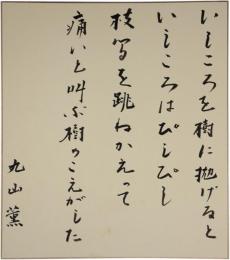 いしころを樹に抛げると
いしころはぴしぴし
枝を跳ねかえって
痛いと叫ぶ樹のこえがした
丸山薫